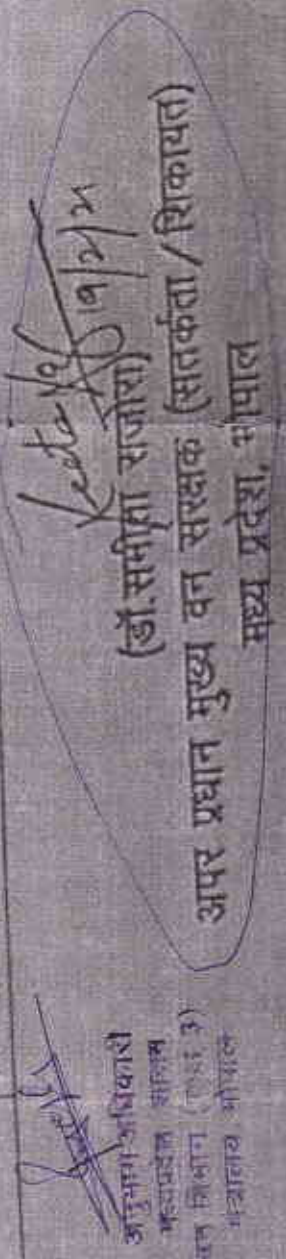 19/2/21
(डॉ.समीता राजोरा)
अपर प्रधान मुख्य वन संरक्षक (सतर्कता/शिकायत)
मध्य प्रदेश, भोपाल
अनुभाग अधिकारी
मध्यप्रदेश शासन
वन विभाग
मंत्रालय भोपाल